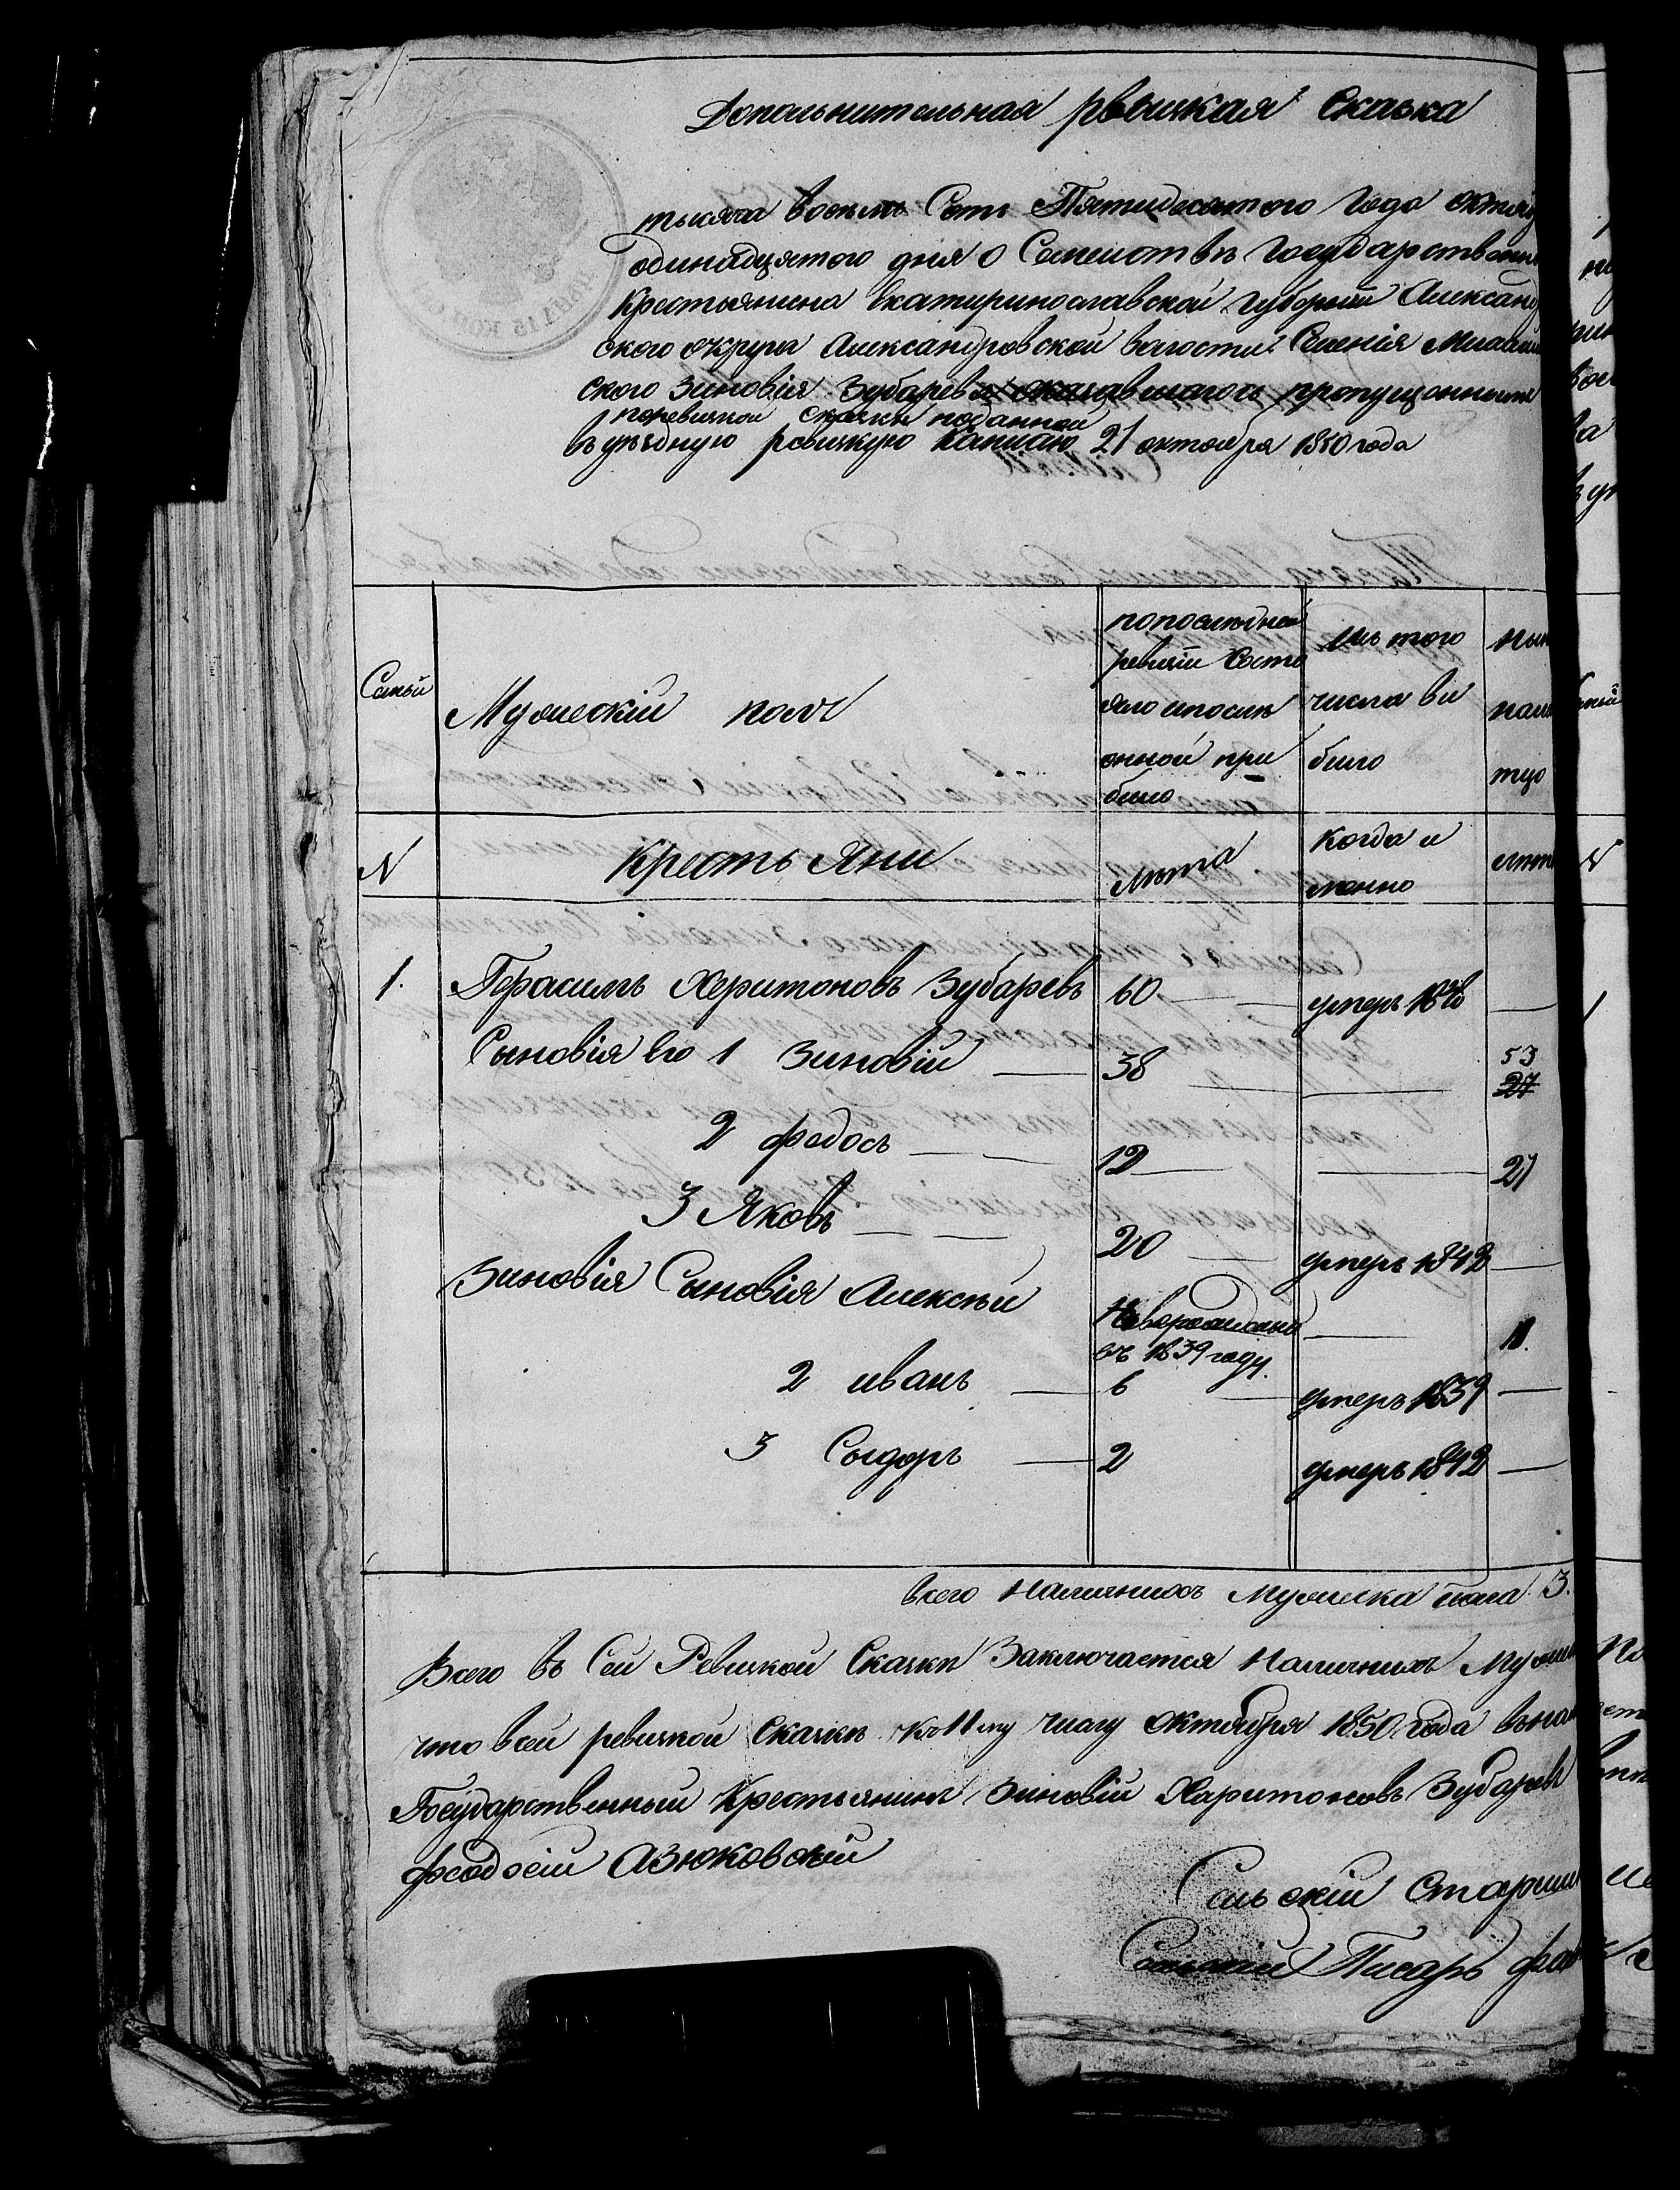 Дополнительная рвызкая Сказка
тысяча восемь Сотъ Пятидесятого Года октяб
одинадцятого дня О Семействъ Государственн
Крестьянина Екатиринославской Губерніи Александ
ского округа Александровской волости Селенія Михайл
ского Зиновія Зубарева пропущенными
поревизкой Сказки поданной
въ уездную ревизкую 21 октоября 1850 года
Семьи
Мужескій полъ
попоследней
ревизіи Состо
яло ипосли
онной при
было
Изъ того
числа ви
было
Нын
нали
тцо
N
Крестьяни
Лъта
Когда и
менно
лът
1.
Герасимъ Херитоновъ Зубаревъ
60
умеръ 18
Сыновія Его 1 Зиновій
38
53
27
2 федосъ
12
27
3 Яковъ
20
умеръ 1842
Зиновія Сыновія Алексъй
Новорожденый
въ 1839 году.
11.
2 иванъ
6
умеръ 1839
3 Сыдоръ
2
умеръ 1842
всего Наличнихъ Мужеска пола 3.
Всего Въ Сей Ревизкой Сказки Заключается Наличнихъ Муже
что всей ревизкой Сказки к 11му числу октября 1850 года
Государственный Крестьянинъ Зиновій Харитоновъ Зубаревъ
феодосій Азюковскій
Сельскій Старшин
Сельскій Писарь фео